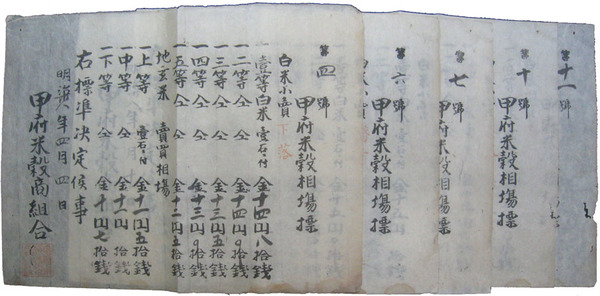 第十一號
第十號
甲府米穀相塲標
第七號
甲府米穀相塲標
第六號
甲府米穀相塲標
第四號
甲府米穀相塲標
白米小賣 下落
一壹等白米壹石ニ付金十四円八拾銭
一二等仝 仝 金十四 拾銭
一三等仝 仝 金十 拾銭
一四等仝 仝 金十三 拾銭
一五等仝 仝 金十二円五拾銭
地玄米 賣買相場
一上等 仝 壹石ニ付 金十一円五拾銭
一中等 仝 仝 金十一円 拾銭
一下等 仝 仝 金十円七拾銭
右標準决定候事
明治 八年四月四日
甲府米穀商組合